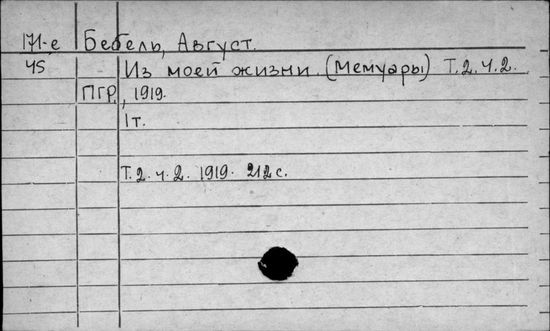 171-е Бебель, Август.
45 Из моей жизни. (Мемуары) Т.2.ч.2.
ПГР., 1919.
1т.
Т.2.ч.2. 1919. 212 с.